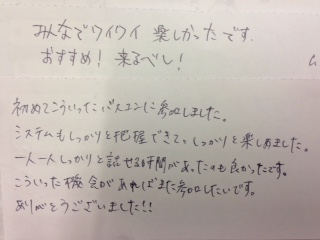 みんなでワイワイ 楽しかったです.
おすすめ! 来るべし!
初めてこういったバスコンに参加しました。
システムもしっかりと把握できて、しっかりと楽しめました。
一人一人しっかりと話せる時間があったのも良かったです。
こういった機会があればまた参加したいです。
ありがとうございました!!